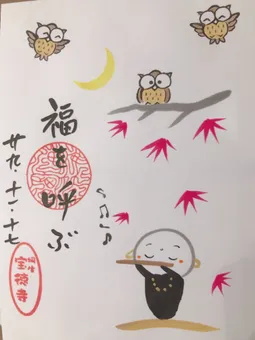 福を呼ぶ
廿九、十一、十七
桐生
宝徳寺